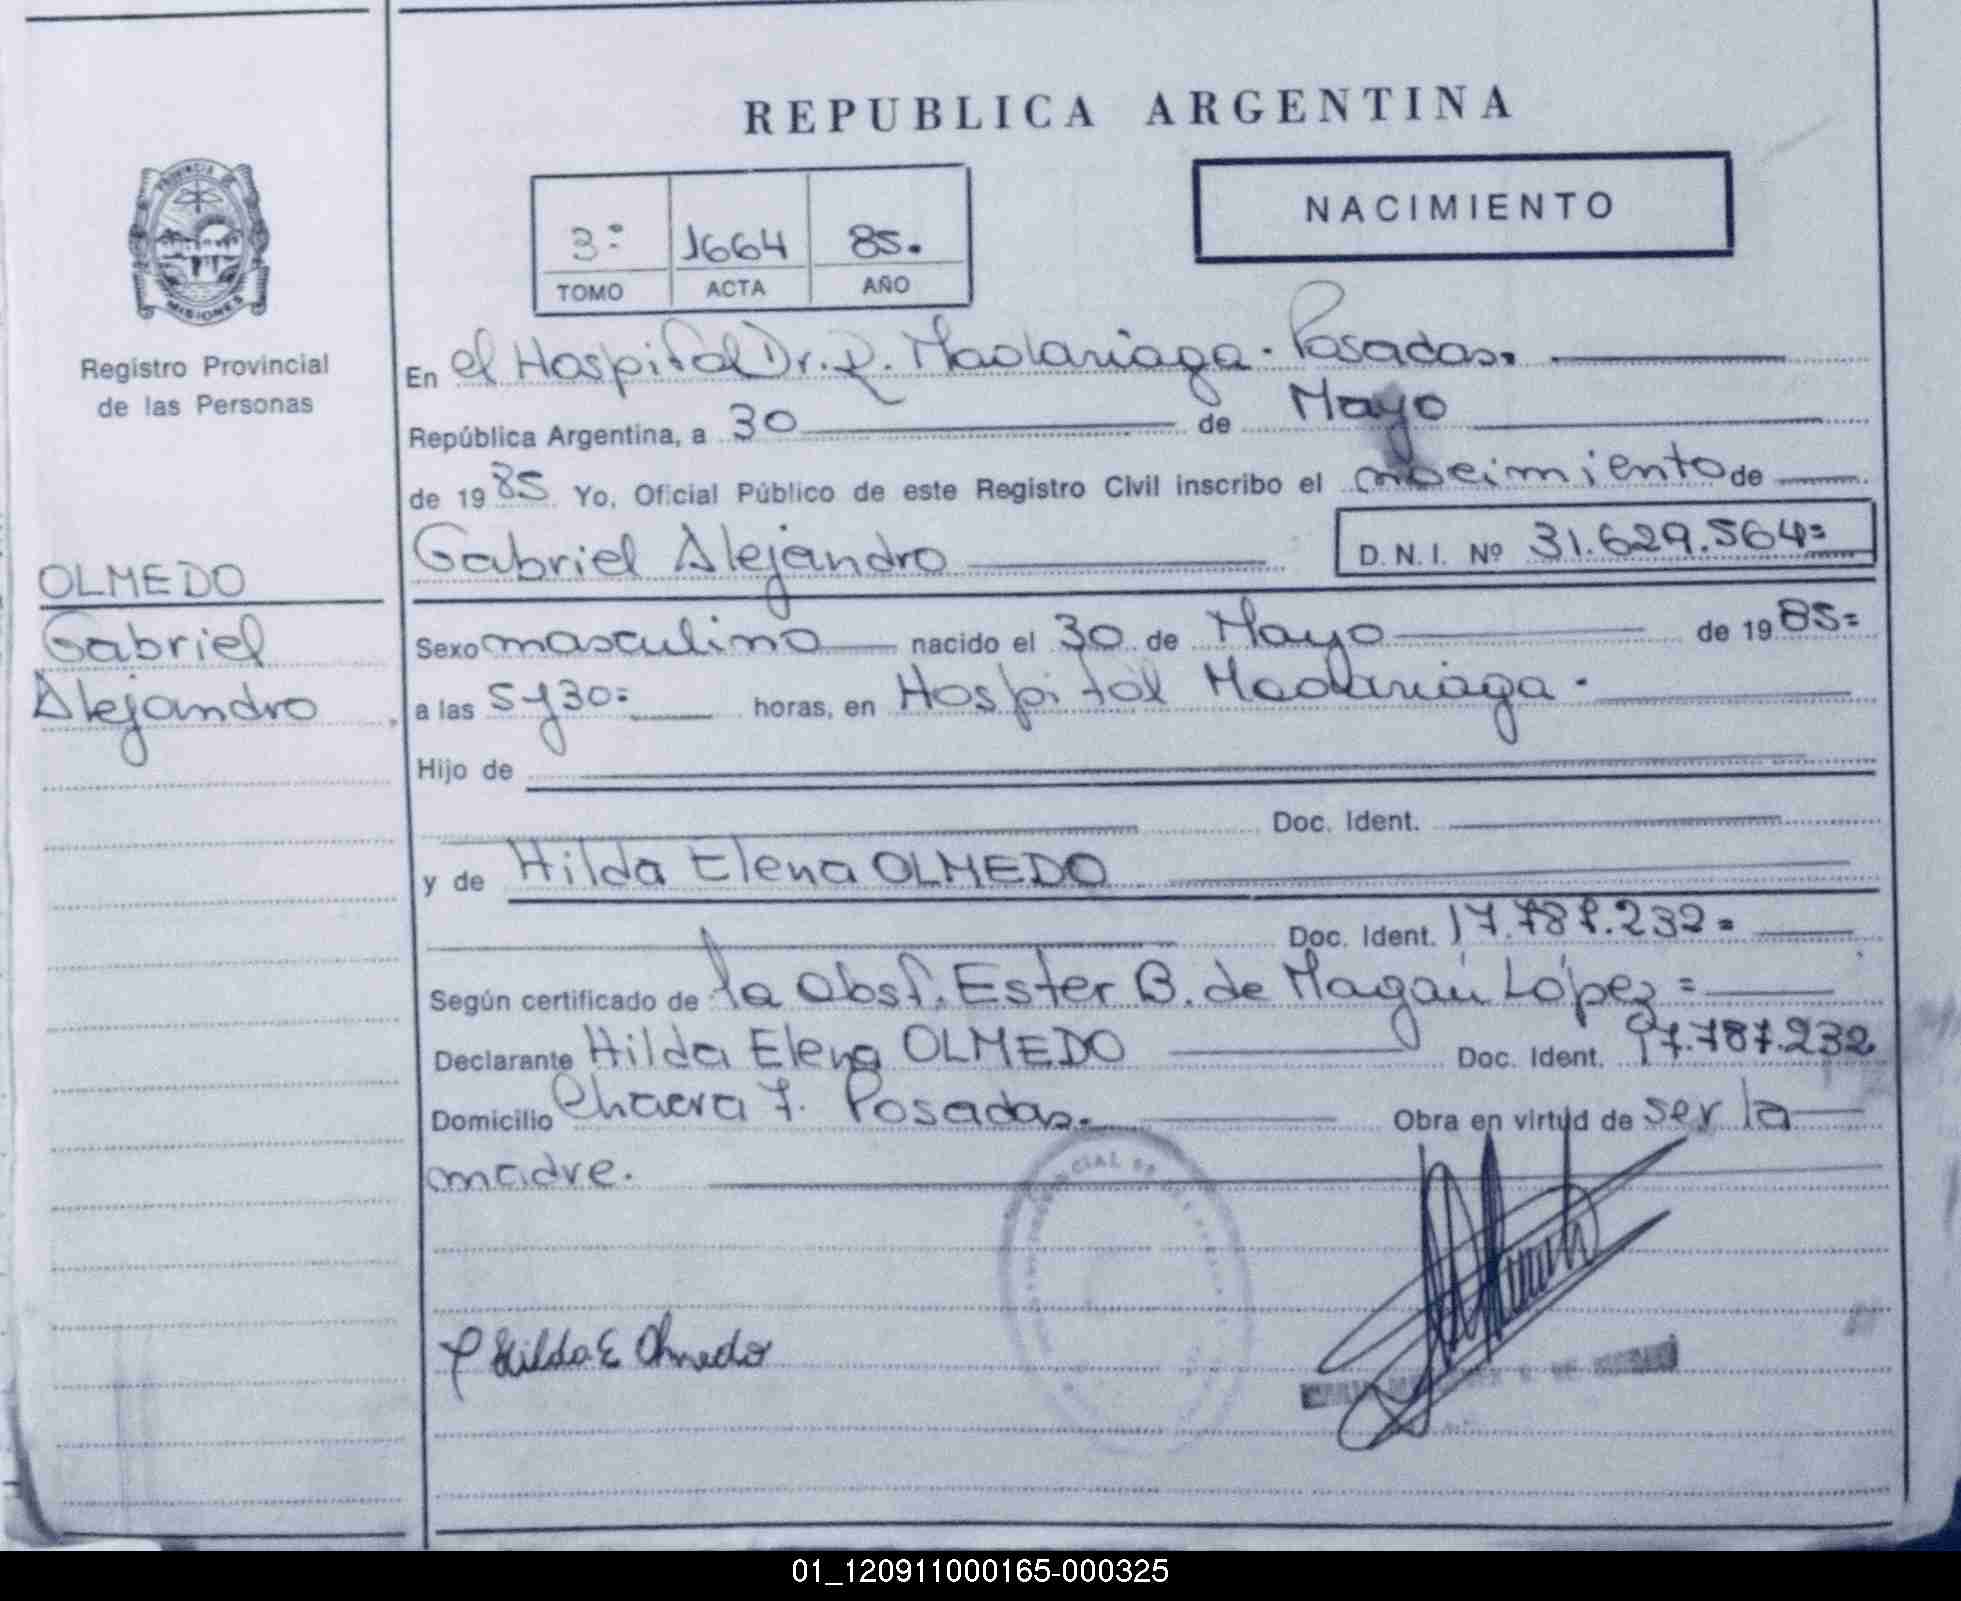 REPUBLICA ARGENTINA
NACIMIENTO
3º 1664 85.
TOMO ACTA AÑO
PROVINCIA DE
MISIONES
Registro Provincial
de las Personas
OLMEDO
Gabriel
Alejandro
En el Hospital Dr. R. Madariaga. Posadas.
República Argentina, a 30 de Mayo
de 1985 Yo, Oficial Público de este Registro Civil inscribo el nacimiento de
Gabriel Alejandro D.N.I. Nº 31.629.564=
Sexo masculino nacido el 30 de Mayo de 1985=
a las 5 y 30= horas, en Hospital Madariaga.
Hijo de
Doc. Ident.
y de Hilda Elena OLMEDO
Doc. Ident. 17.787.232=
Según certificado de la Obst. Ester B. de López=
Declarante Hilda Elena OLMEDO Doc. Ident. 17.787.232
Domicilio Chacra 7. Posadas. Obra en virtud de ser la
madre.
Hilda E Olmedo
01_120911000165-000325